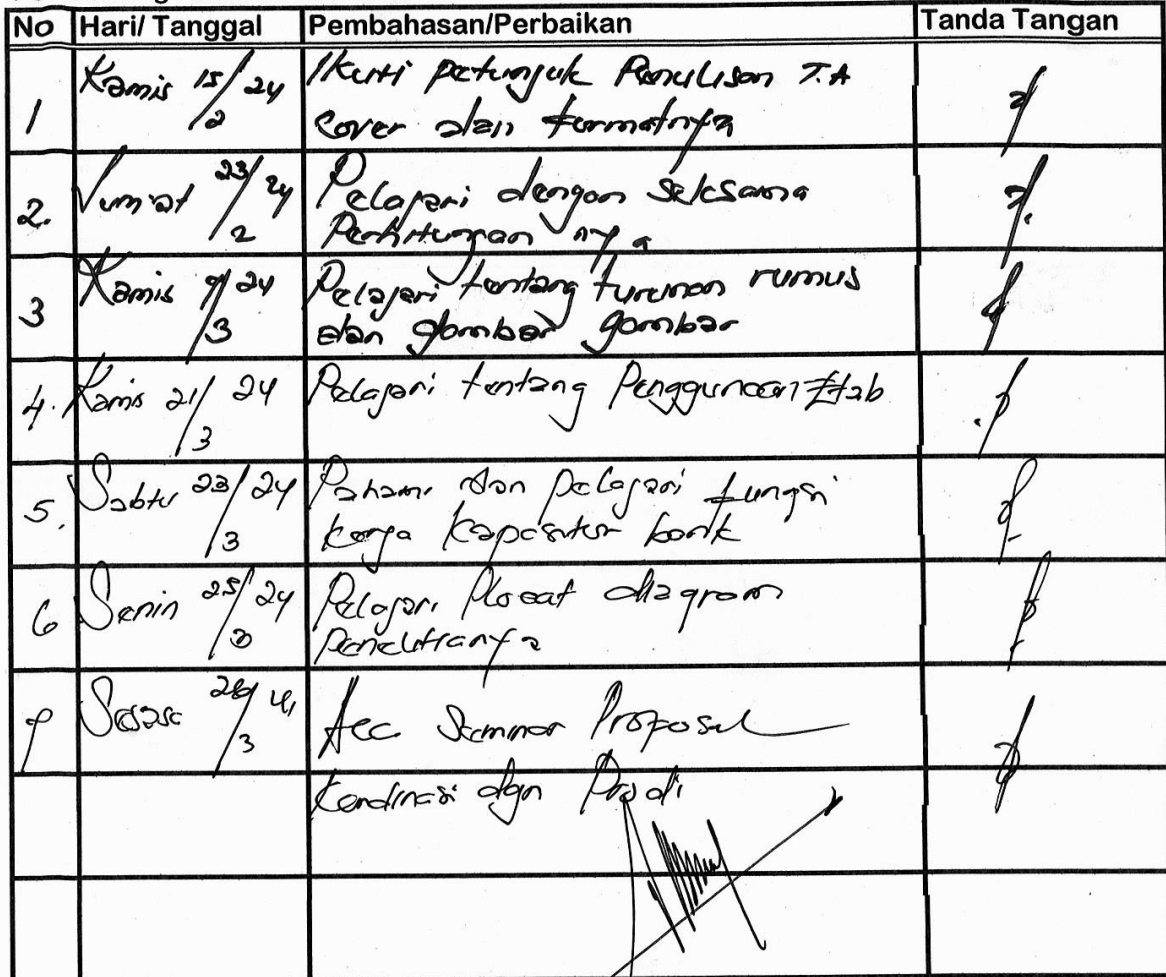 No Hari/ Tanggal Pembahasan/Perbaikan Tanda Tangan
1 Kamis 15/2 24 Ikuti petunjuk Penulisan T.A
cover dan formatnya
2. Jum'at 23/2 24 Pelajari dengan seksama
Perhitungan nya
3 Kamis /3 24 Pelajari tentang turunan rumus
dan gambar gambar
4. Kamis 21/3 24 Pelajari tentang Penggunaan Etab
5. Sabtu 23/3 24 Pahami dan pelajari fungsi
kerja kapasitor bank
6 Senin 25/3 24 Pelajari diagram
Penelitianya
7 26/3 Acc Seminar Proposal
Kordinasi dgn Prodi